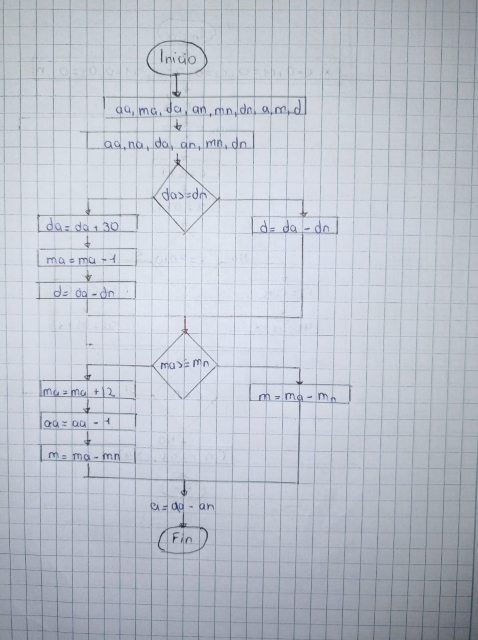 Inicio
aa, ma, da, an, mn, dn, a, m, d
aa, na, da, an, mn, dn
da>=dn
da = da + 30
d = da - dn
ma = ma - 1
d = da - dn
ma>=mn
ma = ma + 12
m = ma - mn
aa = aa - 1
m = ma - mn
a = aa - an
Fin